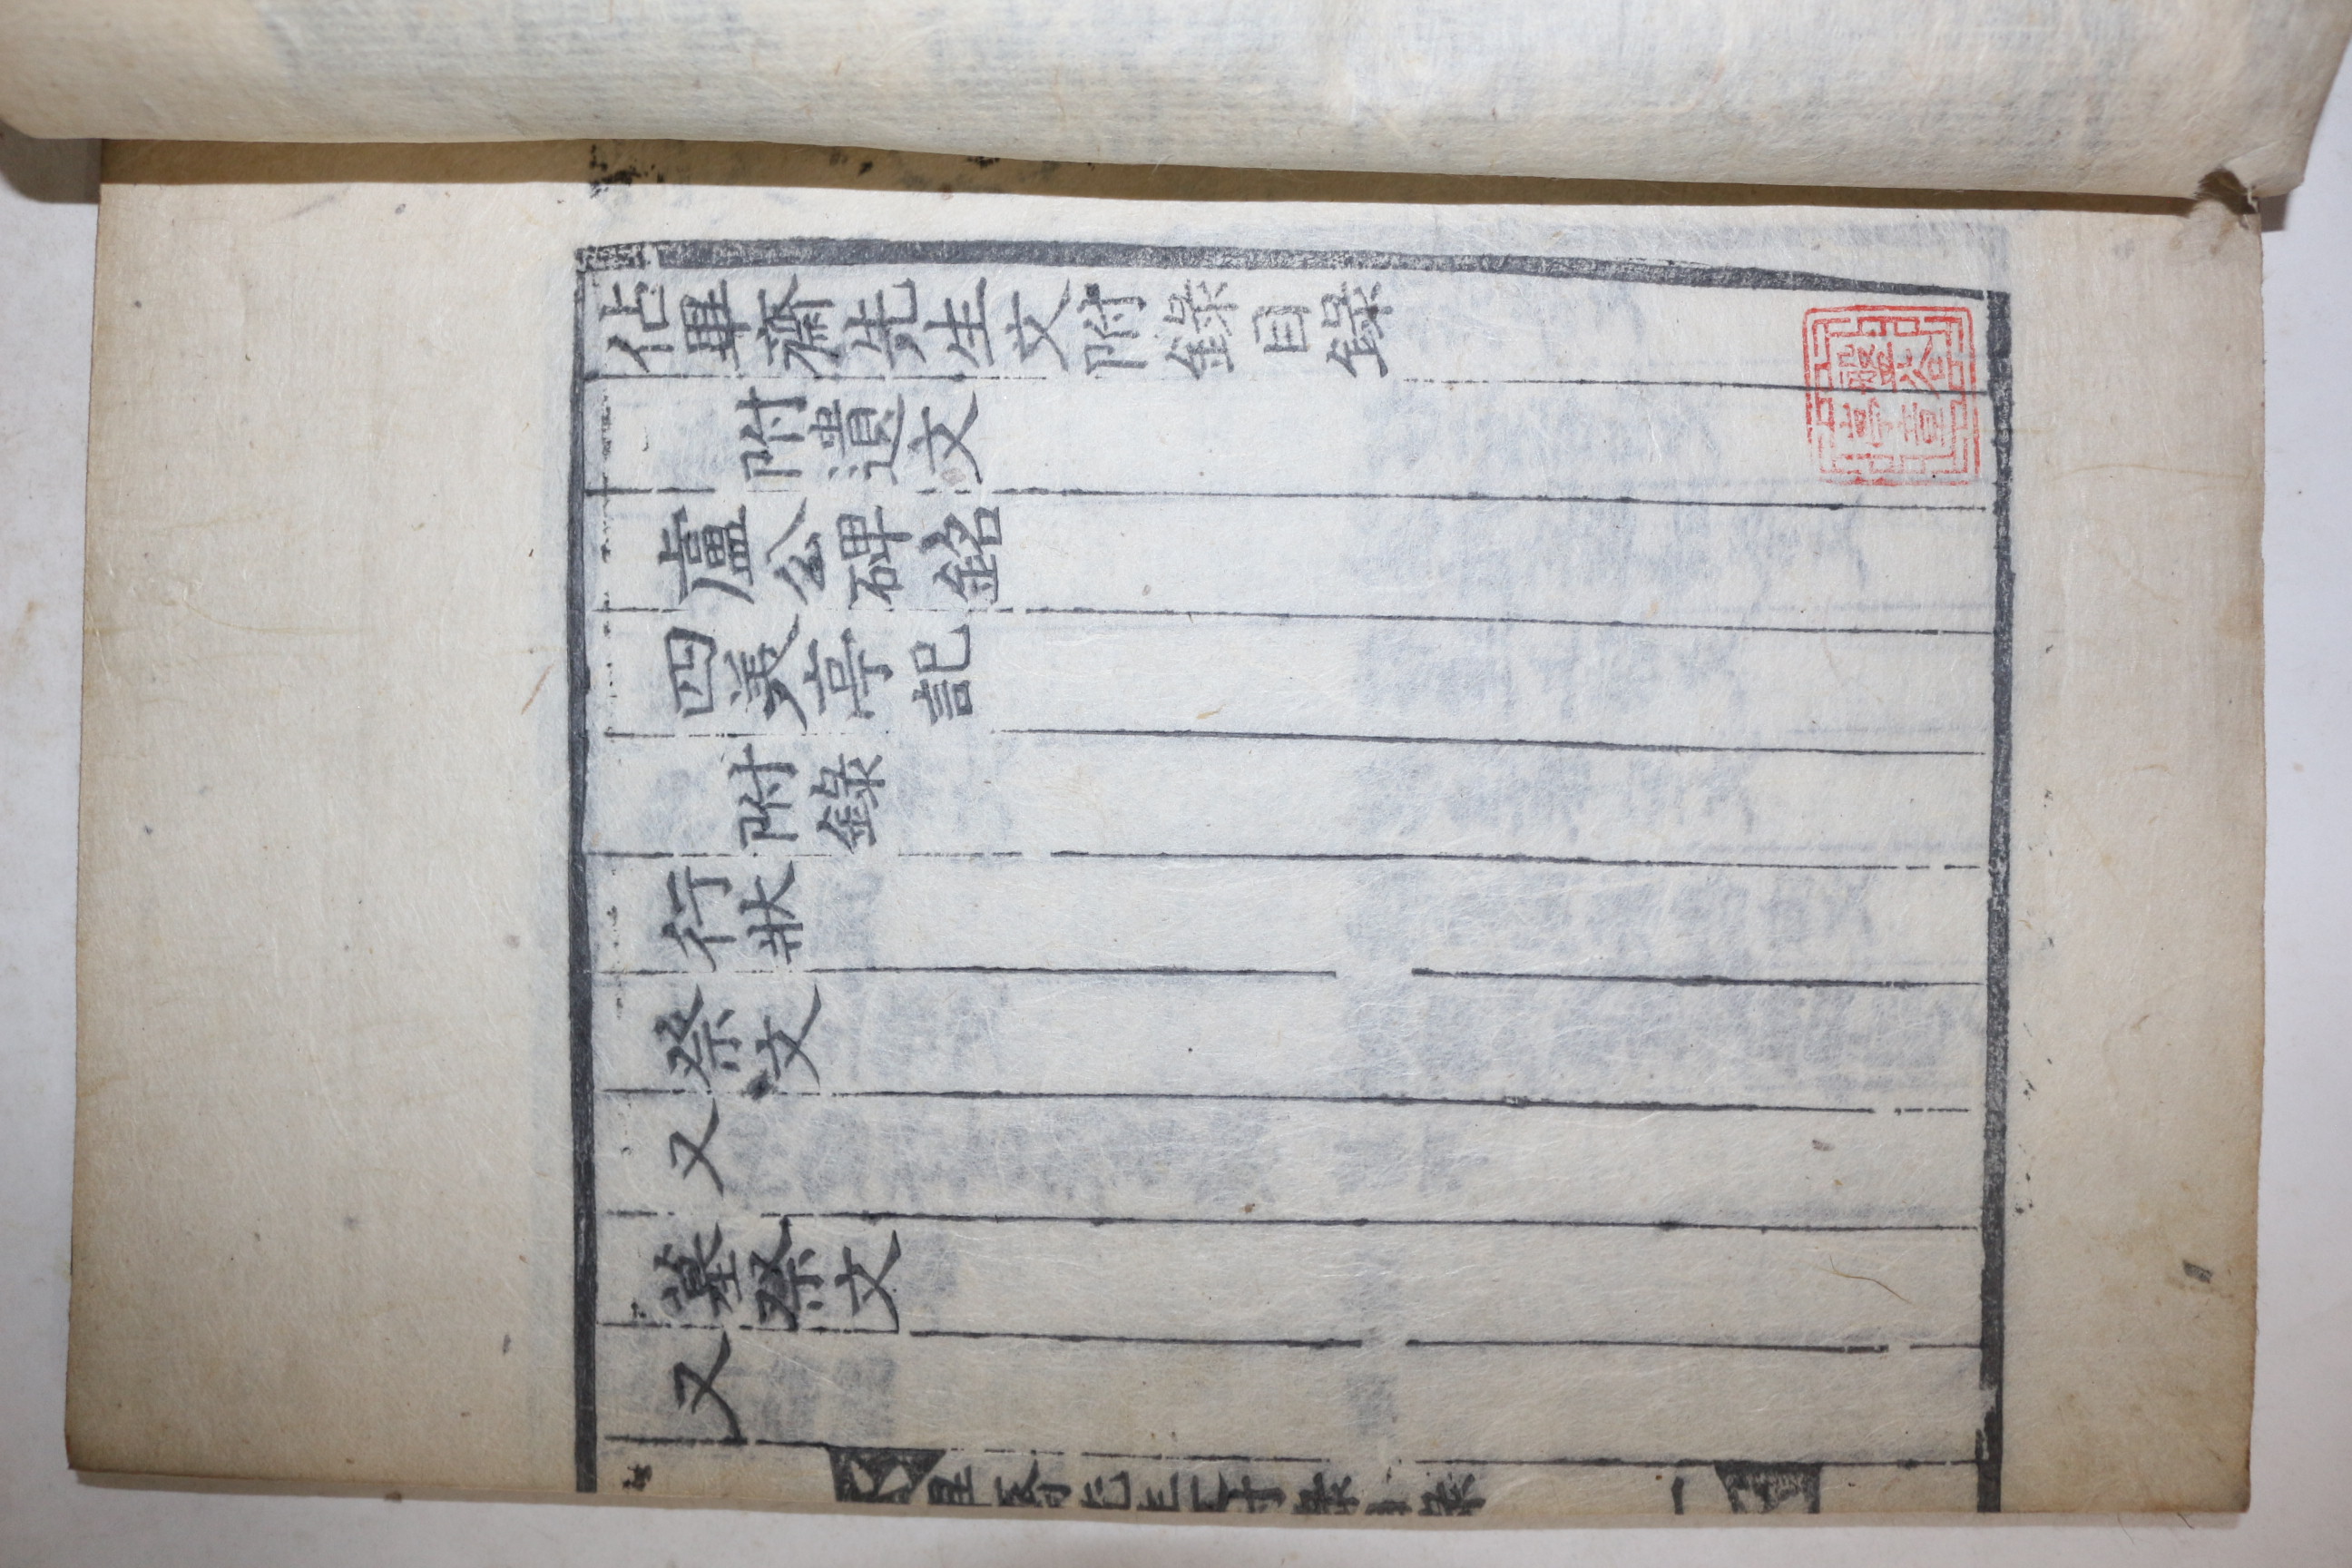 佔畢齋先生文附錄目錄
附遺文
盧公碑銘
四美亭記
附錄
行狀
祭文
又
墓祭文
又
畢齋先生文附錄目錄
一
盤谷
亭章